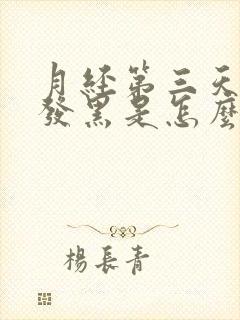 月經第三天
發黑是怎麼
楊長青